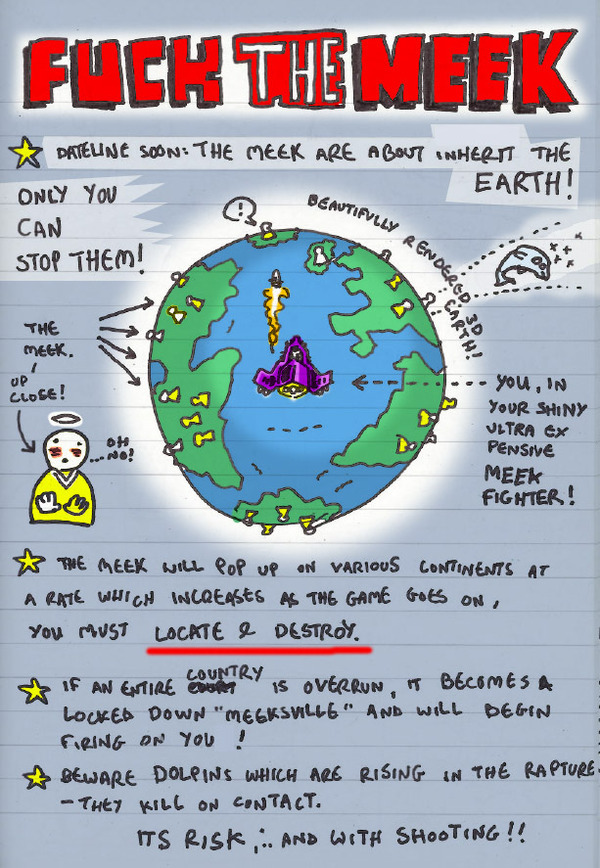 FUCK THE MEEK
DATELINE SOON: THE MEEK ARE ABOUT INHERIT THE
EARTH!
ONLY YOU
CAN
STOP THEM!
!
BEAUTIFULLY RENDERED 3D
EARTH!
THE
MEEK.
UP
CLOSE!
OH
...NO!
YOU, IN
YOUR SHINY
ULTRA EX
PENSIVE
MEEK
FIGHTER!
THE MEEK WILL POP UP ON VARIOUS CONTINENTS AT
A RATE WHICH INCREASES AS THE GAME GOES ON,
YOU MUST LOCATE & DESTROY.
IF AN ENTIRE COUNTRY IS OVERRUN, IT BECOMES A
LOCKED DOWN "MEEKSVILLE" AND WILL BEGIN
FIRING ON YOU !
BEWARE DOLPINS WHICH ARE RISING IN THE RAPTURE
- THEY KILL ON CONTACT.
ITS RISK,... AND WITH SHOOTING!!